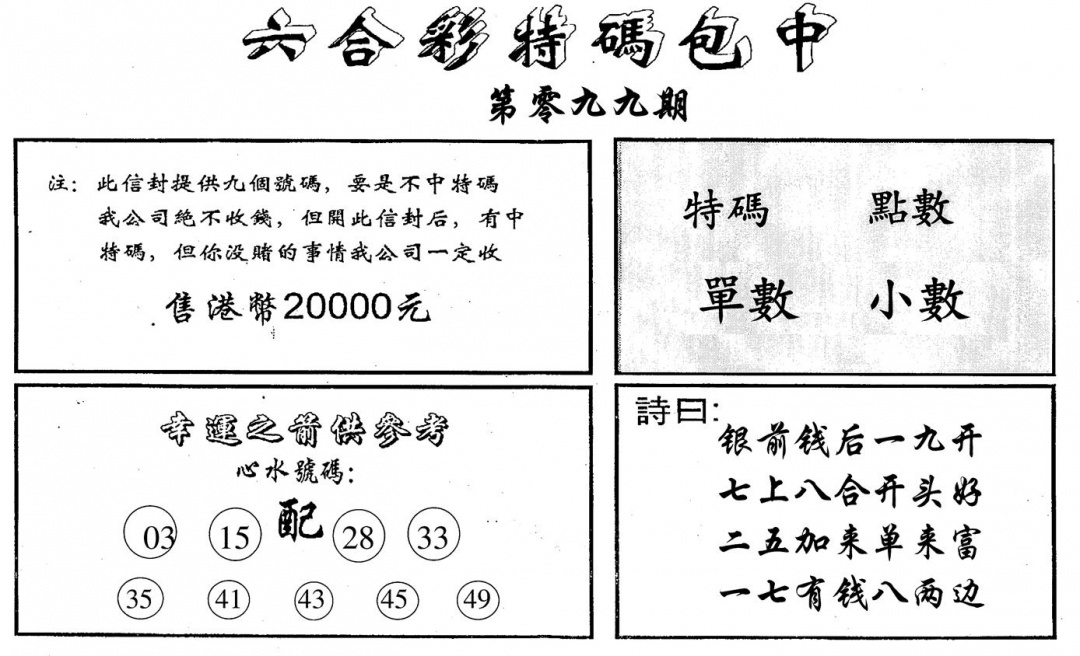 六合彩特碼包中
第零九九期
注：此信封提供九個號碼，要是不中特碼
我公司絶不收錢，但開此信封后，有中
特碼，但你没賭的事情我公司一定收
售港幣20000元
特碼 點數
單數 小數
幸運之箭供參考
心水號碼：
03 15 配 28 33
35 41 43 45 49
詩曰：
银前钱后一九开
七上八合开头好
二五加来单来富
一七有钱八两边